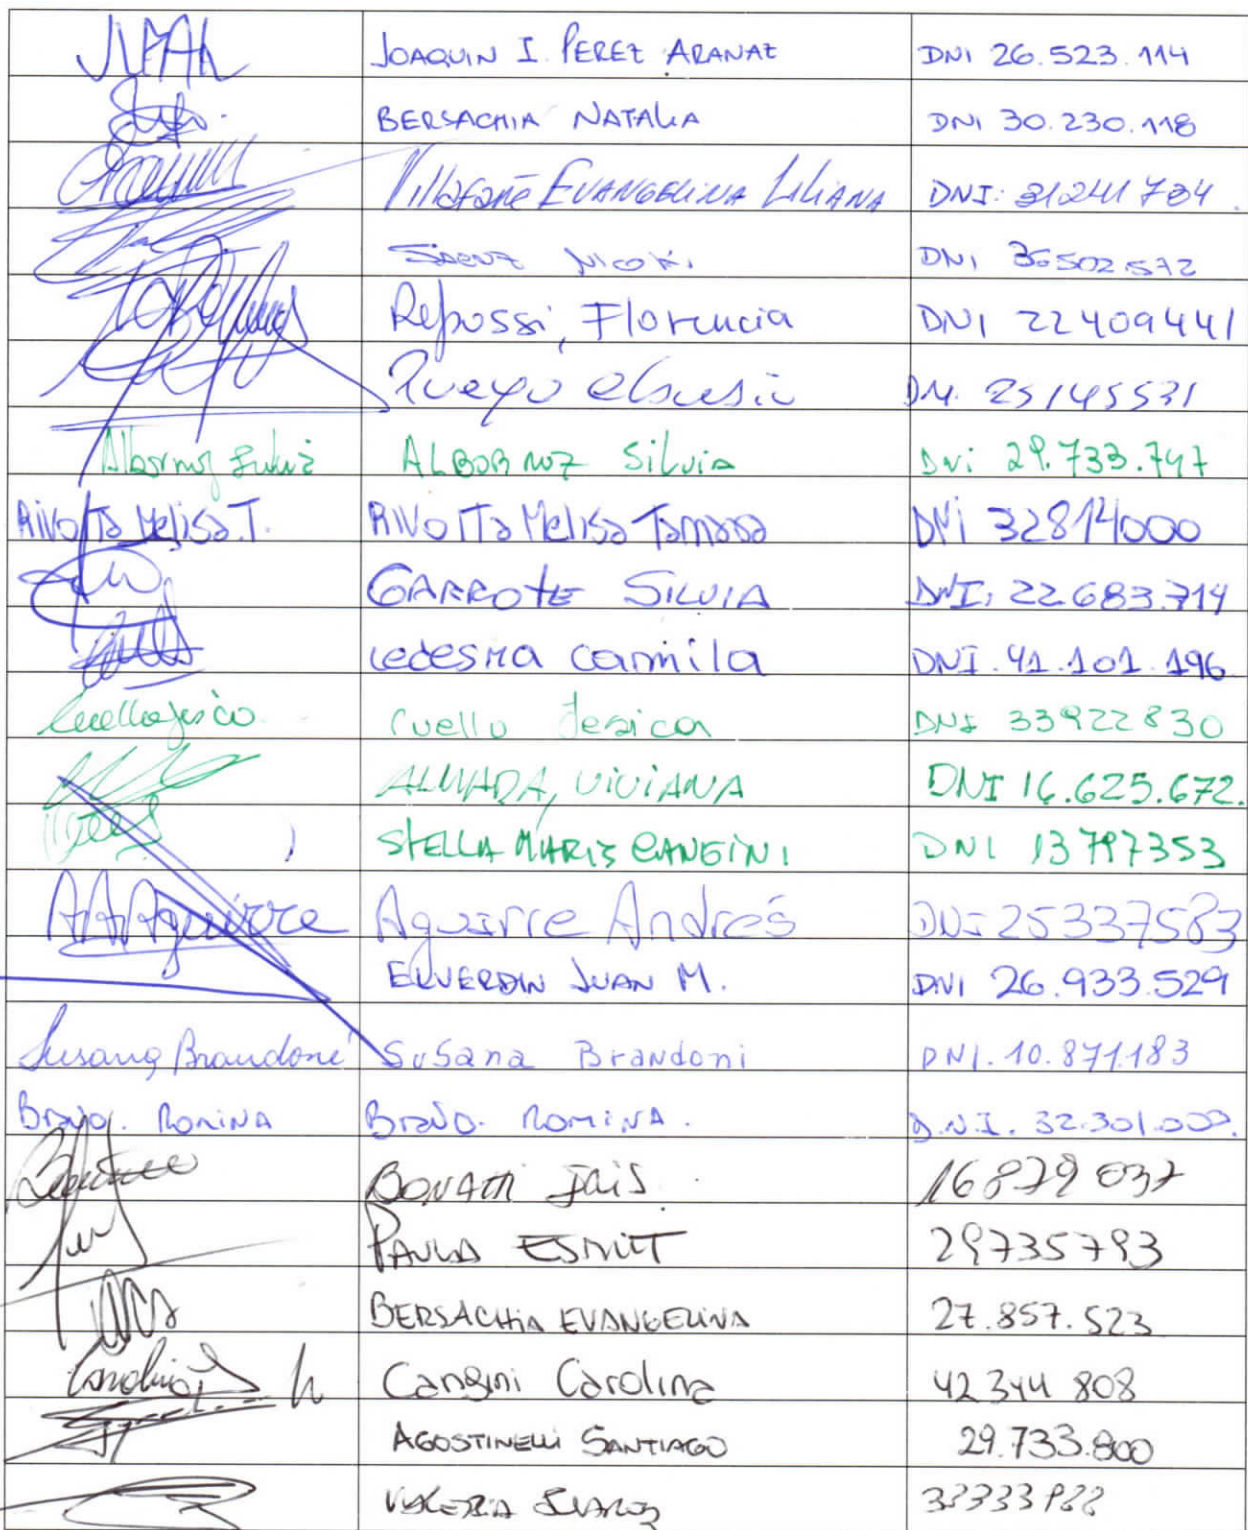 JOAQUIN I. PEREZ ARANAZ DNI 26.523.114
BERSACHIA NATALIA DNI 30.230.118
Villafañe EVANGELINA LILIANA DNI: 31241734.
SAENZ DNI 36502572
Repossi, Florencia DNI 22409441
Pueyo DNI. 25145531
Albornoz Silvia ALBORNOZ Silvia DNi 29.733.747
RIVOTTA Melisa T. RIVOTTA Melisa Tamara DNi 32814000
GARROTE SILVIA DNI: 22.683.714
Ledesma camila DNI. 41.101.196
Cuello Jesica Cuello Jesica DNI 33922830
ALMADA, ViViANA DNI 16.625.672.
STELLA MARIS CANGINI DNI 13797353
AAAguirre Aguirre Andrés DNI 25337583
ELVERDIN JUAN M. DNI 26.933.529
Susana Brandoni Susana Brandoni DNI. 10.871.183
Bravo. Romina Bravo. Romina. D.N.I. 32.301.000.
BONATTI 16879037
PAULA ESMIT 29735793
BERSACHIA EVANGELINA 27.857.523
Carolina Cangini Carolina 42344 808
AGOSTINELLI SANTIAGO 29.733.800
VALERIA SUAREZ